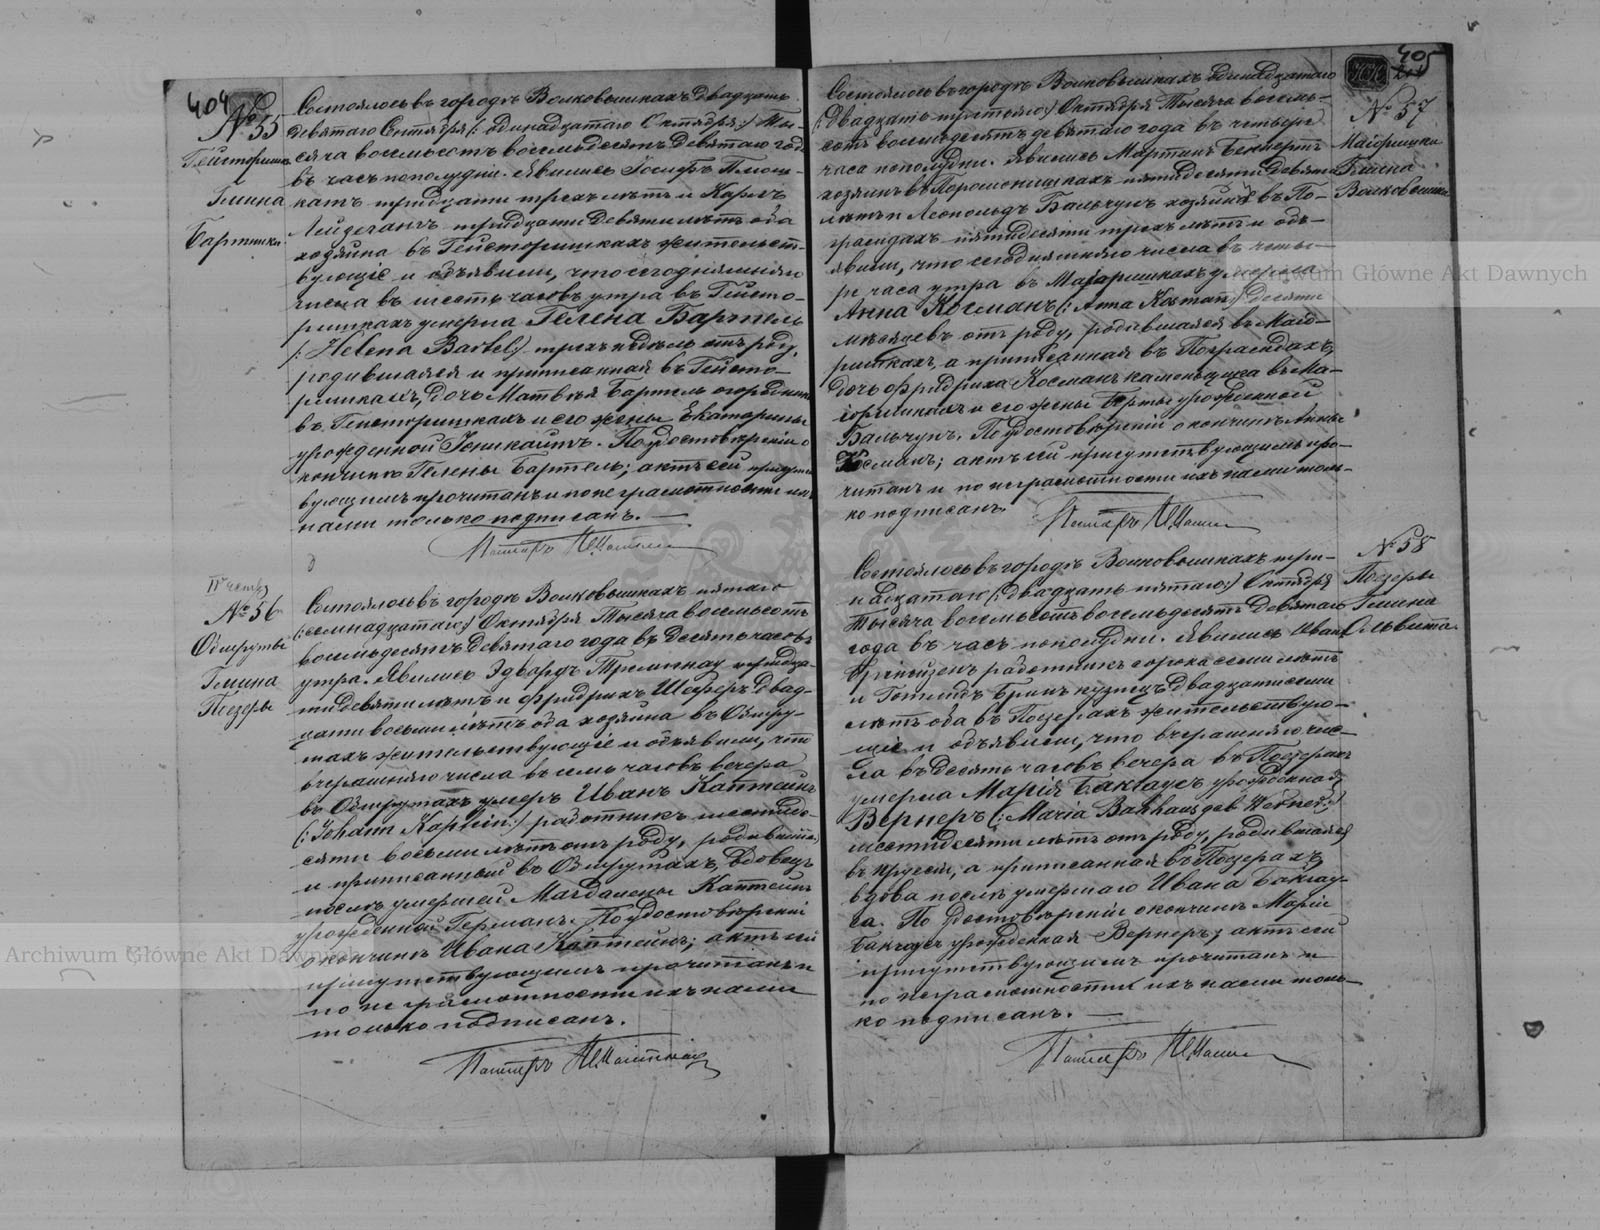 404
№ 55
Гейсторишки
Гмина
Бартники.
Состоялось въ городѣ Волковышкахъ двадцать
девятаго Сентября (: одинадцатаго Октября:) Ты-
сяча восемьсотъ восемьдесятъ девятаго года
въ часъ пополудни. Явились Іосифъ
катъ тридцати трехъ лѣтъ и Карлъ
тридцати девяти лѣтъ оба
хозяина въ Гейсторишкахъ жительст-
вующіе и объявили, что сегодняшняго
числа въ шесть часовъ утра въ Гейсто-
ришкахъ умерла Гелена Бартель
(: Helena Bartel:) трехъ недѣль отъ роду,
родившаяся и приписанная въ Гейсто-
ришкахъ, дочь Матвѣя Бартель огородника
въ Гейсторишкахъ и его жены Екатерины
урожденной. По удостовѣреніи о
кончинѣ Гелены Бартель; актъ сей присутст-
вующимъ прочитанъ и по неграмотности ихъ
нами только подписанъ. —
Пасторъ
№ 56
Обшруты
Гмина
Поезеры
Состоялось въ городѣ Волковышкахъ пятаго
(: семнадцатаго:) Октября Тысяча восемьсотъ
восемьдесятъ девятаго года въ десять часовъ
утра. Явились Эдвардъ тридца-
ти девяти лѣтъ и Фридрихъ Шеферъ двад-
цати восьми лѣтъ оба хозяина въ Обшру-
тахъ жительствующіе и объявили, что
вчерашняго числа въ семь часовъ вечера
въ Обшрутахъ умеръ Иванъ Каптейнъ
(: Johann Kaptein:) работникъ шестиде-
сяти восьми лѣтъ отъ роду, родившійся
и приписанный въ Обшрутахъ, вдовецъ
послѣ умершей Магдалены Каптейнъ
урожденной Германъ. По удостовѣреніи
о кончинѣ Ивана Каптейнъ; актъ сей
присутствующимъ прочитанъ и
по неграмотности ихъ нами
только подписанъ.
Пасторъ
405
№ 57
Майоришки
Гмина
Волковышки
Состоялось въ городѣ Волковышкахъ одинадцатаго
(: двадцать третьяго:) Октября Тысяча восемь-
сотъ восемьдесятъ девятаго года въ четыре
часа пополудни. Явились Мартинъ
хозяинъ въ пятидесяти девяти
лѣтъ и Леопольдъ Бальчунъ хозяинъ въ По-
граендахъ пятидесяти трехъ лѣтъ и объ-
явили, что сегодняшняго числа въ четы-
ре часа утра въ Маіоришкахъ умерла
Анна Косманъ (: Anna Kosmann:) десяти
мѣсяцевъ отъ роду, родившаяся въ Маіо-
ришкахъ, а приписанная въ Пограендахъ,
дочь Фридриха Косманъ каменьщика въ Ма-
іоришкахъ и его жены Берты урожденной
Бальчунъ. По удостовѣреніи о кончинѣ Анны
Косманъ; актъ сей присутствующимъ про-
читанъ и по неграмотности ихъ нами толь-
ко подписанъ.
Пасторъ
№ 58
Поезеры
Гмина
Ольвита.
Состоялось въ городѣ Волковышкахъ три-
надцатаго (: двадцать пятаго:) Октября
Тысяча восемьсотъ восемьдесятъ девятаго
года въ часъ пополудни. Явились Иванъ
работникъ сорока семи лѣтъ
и Готлибъ кузнецъ двадцати семи
лѣтъ оба въ Поезерахъ жительствую-
щіе и объявили, что вчерашняго чис-
ла въ десять часовъ вечера въ Поезерахъ
умерла Марія Бакгаусъ урожденная
Вернеръ (: Maria Bakhaus geb Werner:)
шестидесяти лѣтъ отъ роду, родившаяся
въ Пруссіи, а приписанная въ Поезерахъ,
вдова послѣ умершаго Ивана Бакгау-
са. По удостовѣреніи о кончинѣ Маріи
Бакгаусъ урожденная Вернеръ; актъ сей
присутствующимъ прочитанъ и
по неграмотности ихъ нами толь-
ко подписанъ. —
Пасторъ
Archiwum Główne Akt Dawnych
Archiwum Główne Akt Dawnych